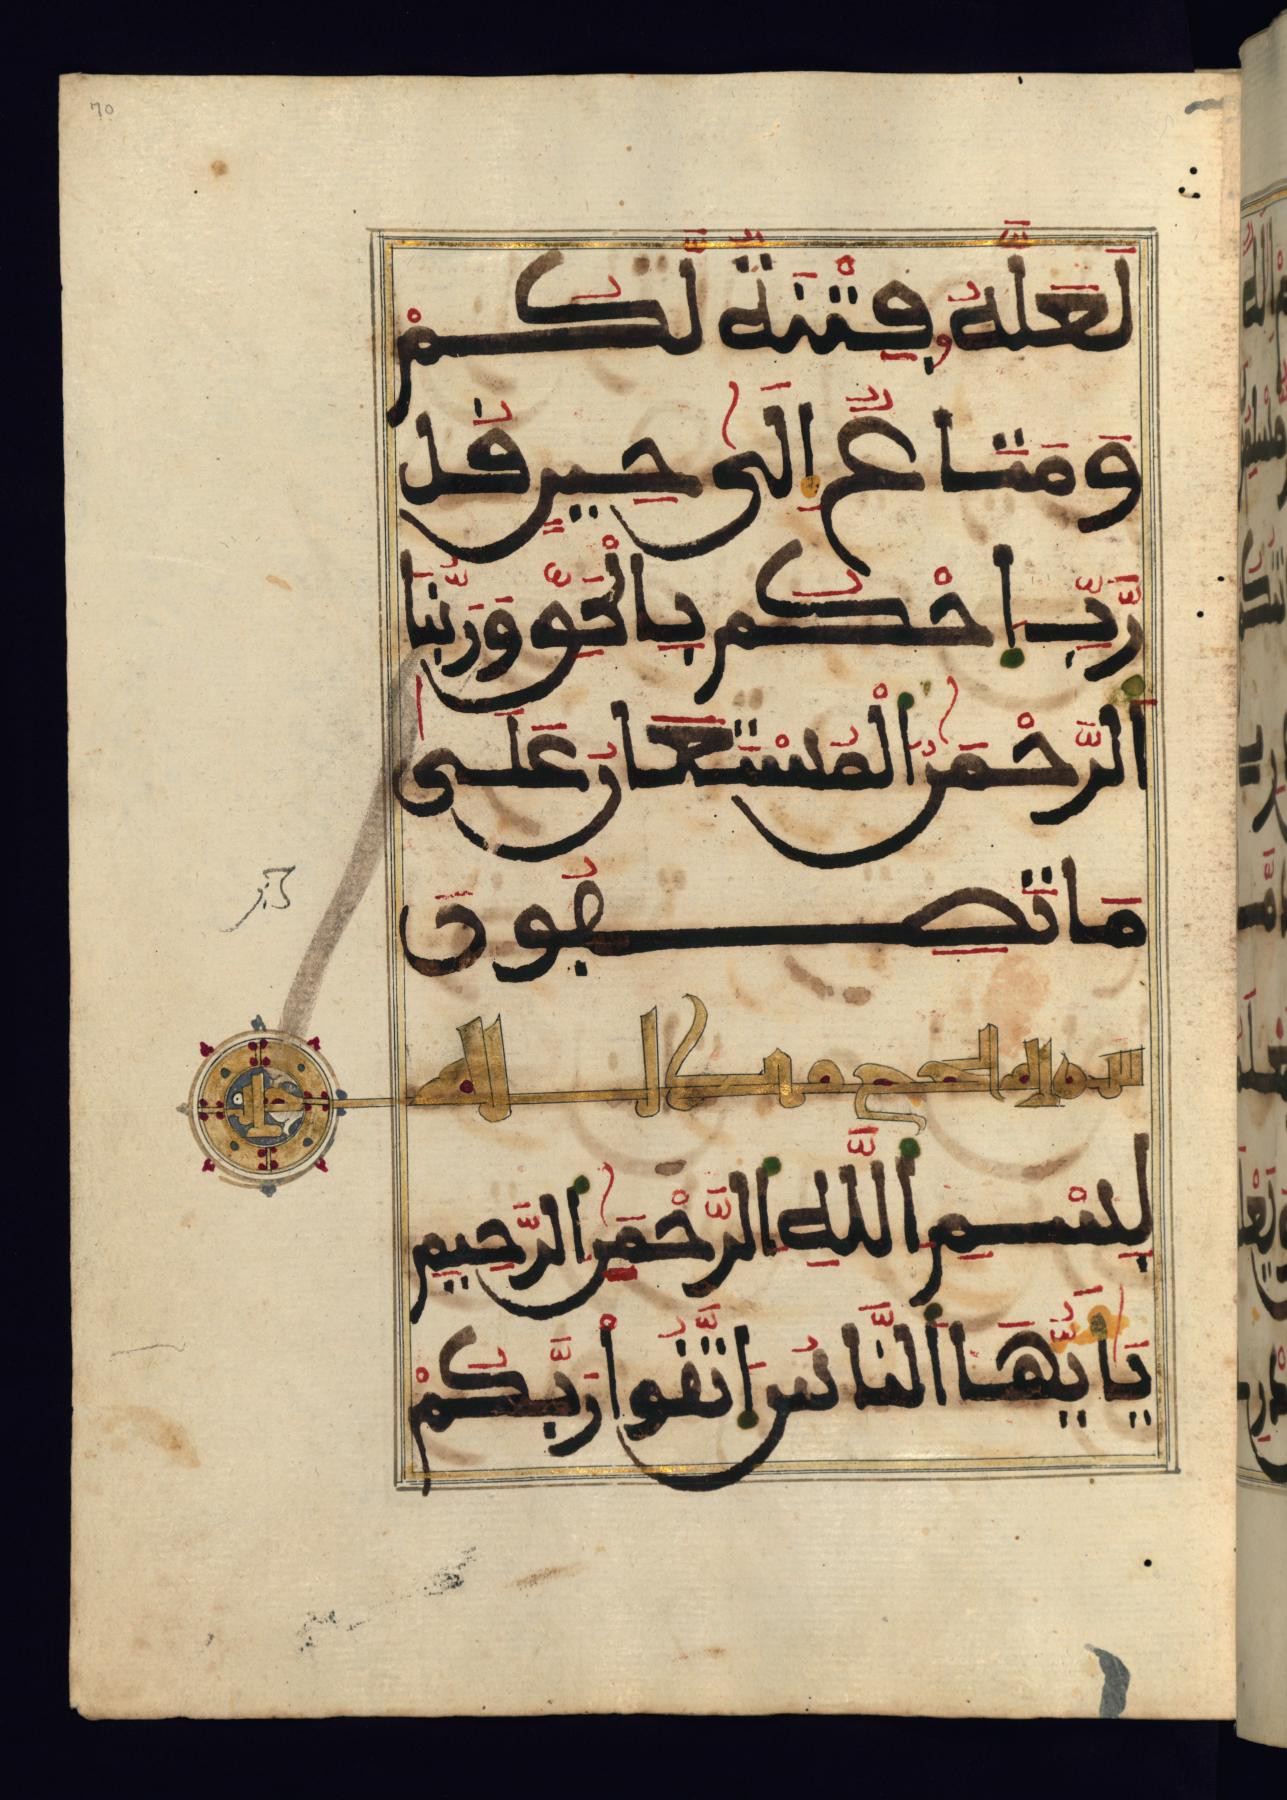 70
لَعَلَّهُ فِتْنَةٌ لَّكُمْ
وَمَتَاعٌ إِلَى حِينٍ قُل
رَّبِّ احْكُم بِالْحَقِّ وَرَبُّنَا
الرَّحْمَنُ الْمُسْتَعَانُ عَلَى
مَا تَصِفُونَ
سورة الحج
بِسْمِ اللَّهِ الرَّحْمَنِ الرَّحِيمِ
يَأَيُّهَا النَّاسُ اتَّقُواْ رَبَّكُمْ